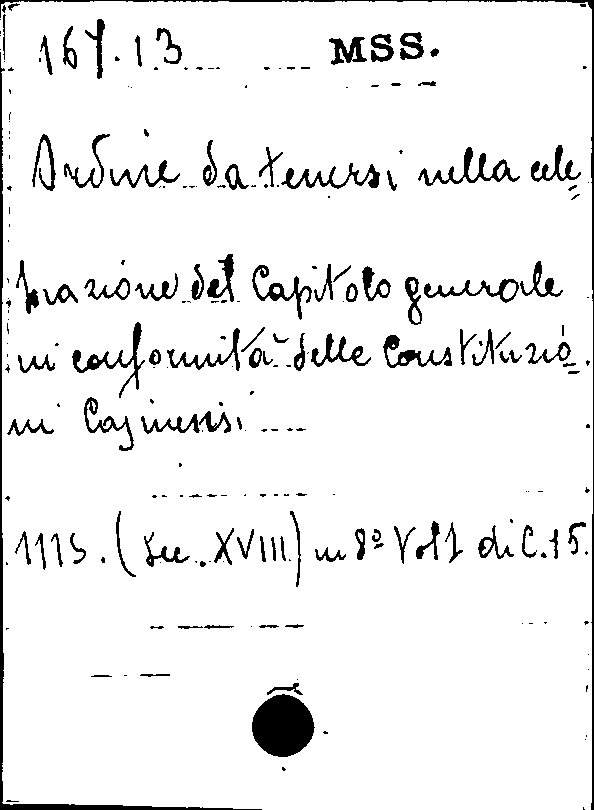 167.13 MSS.
Ordine da tenersi nella cele=
brazione del Capitolo generale
in conformità delle Constituzio=
ni Casinensi
MS. (Sec. XVIII) in 8º Vol 1 di C. 15.